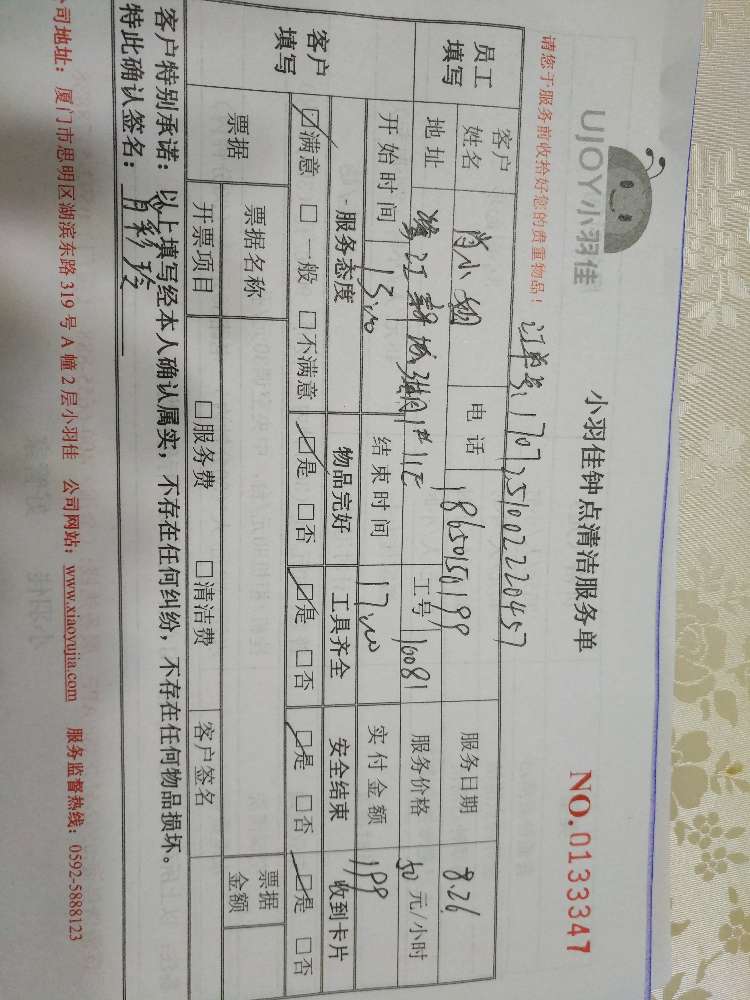 UJOY小羽佳
小羽佳钟点清洁服务单
NO.0133347
请您于服务前收拾好您的贵重物品!
订单号:1707351002220457
员工填写 客户姓名 肖小姐 电话 18650150199 服务日期 8.26
地址 工号 10081 服务价格 50元/小时
开始时间 13:00 结束时间 17:00 实付金额 199
客户填写 服务态度 物品完好 工具齐全 安全结束 收到卡片
☑满意 □一般 □不满意 ☑是 □否 ☑是 □否 ☑是 □否 ☑是 □否
票据 票据名称 票据金额
开票项目 □服务费 □清洁费 客户签名
客户特别承诺:以上填写经本人确认属实,不存在任何纠纷,不存在任何物品损坏。
特此确认签名:
司地址:厦门市思明区湖滨东路319号A幢2层小羽佳 公司网站:www.xiaoyujia.com 服务监督热线:0592-5888123